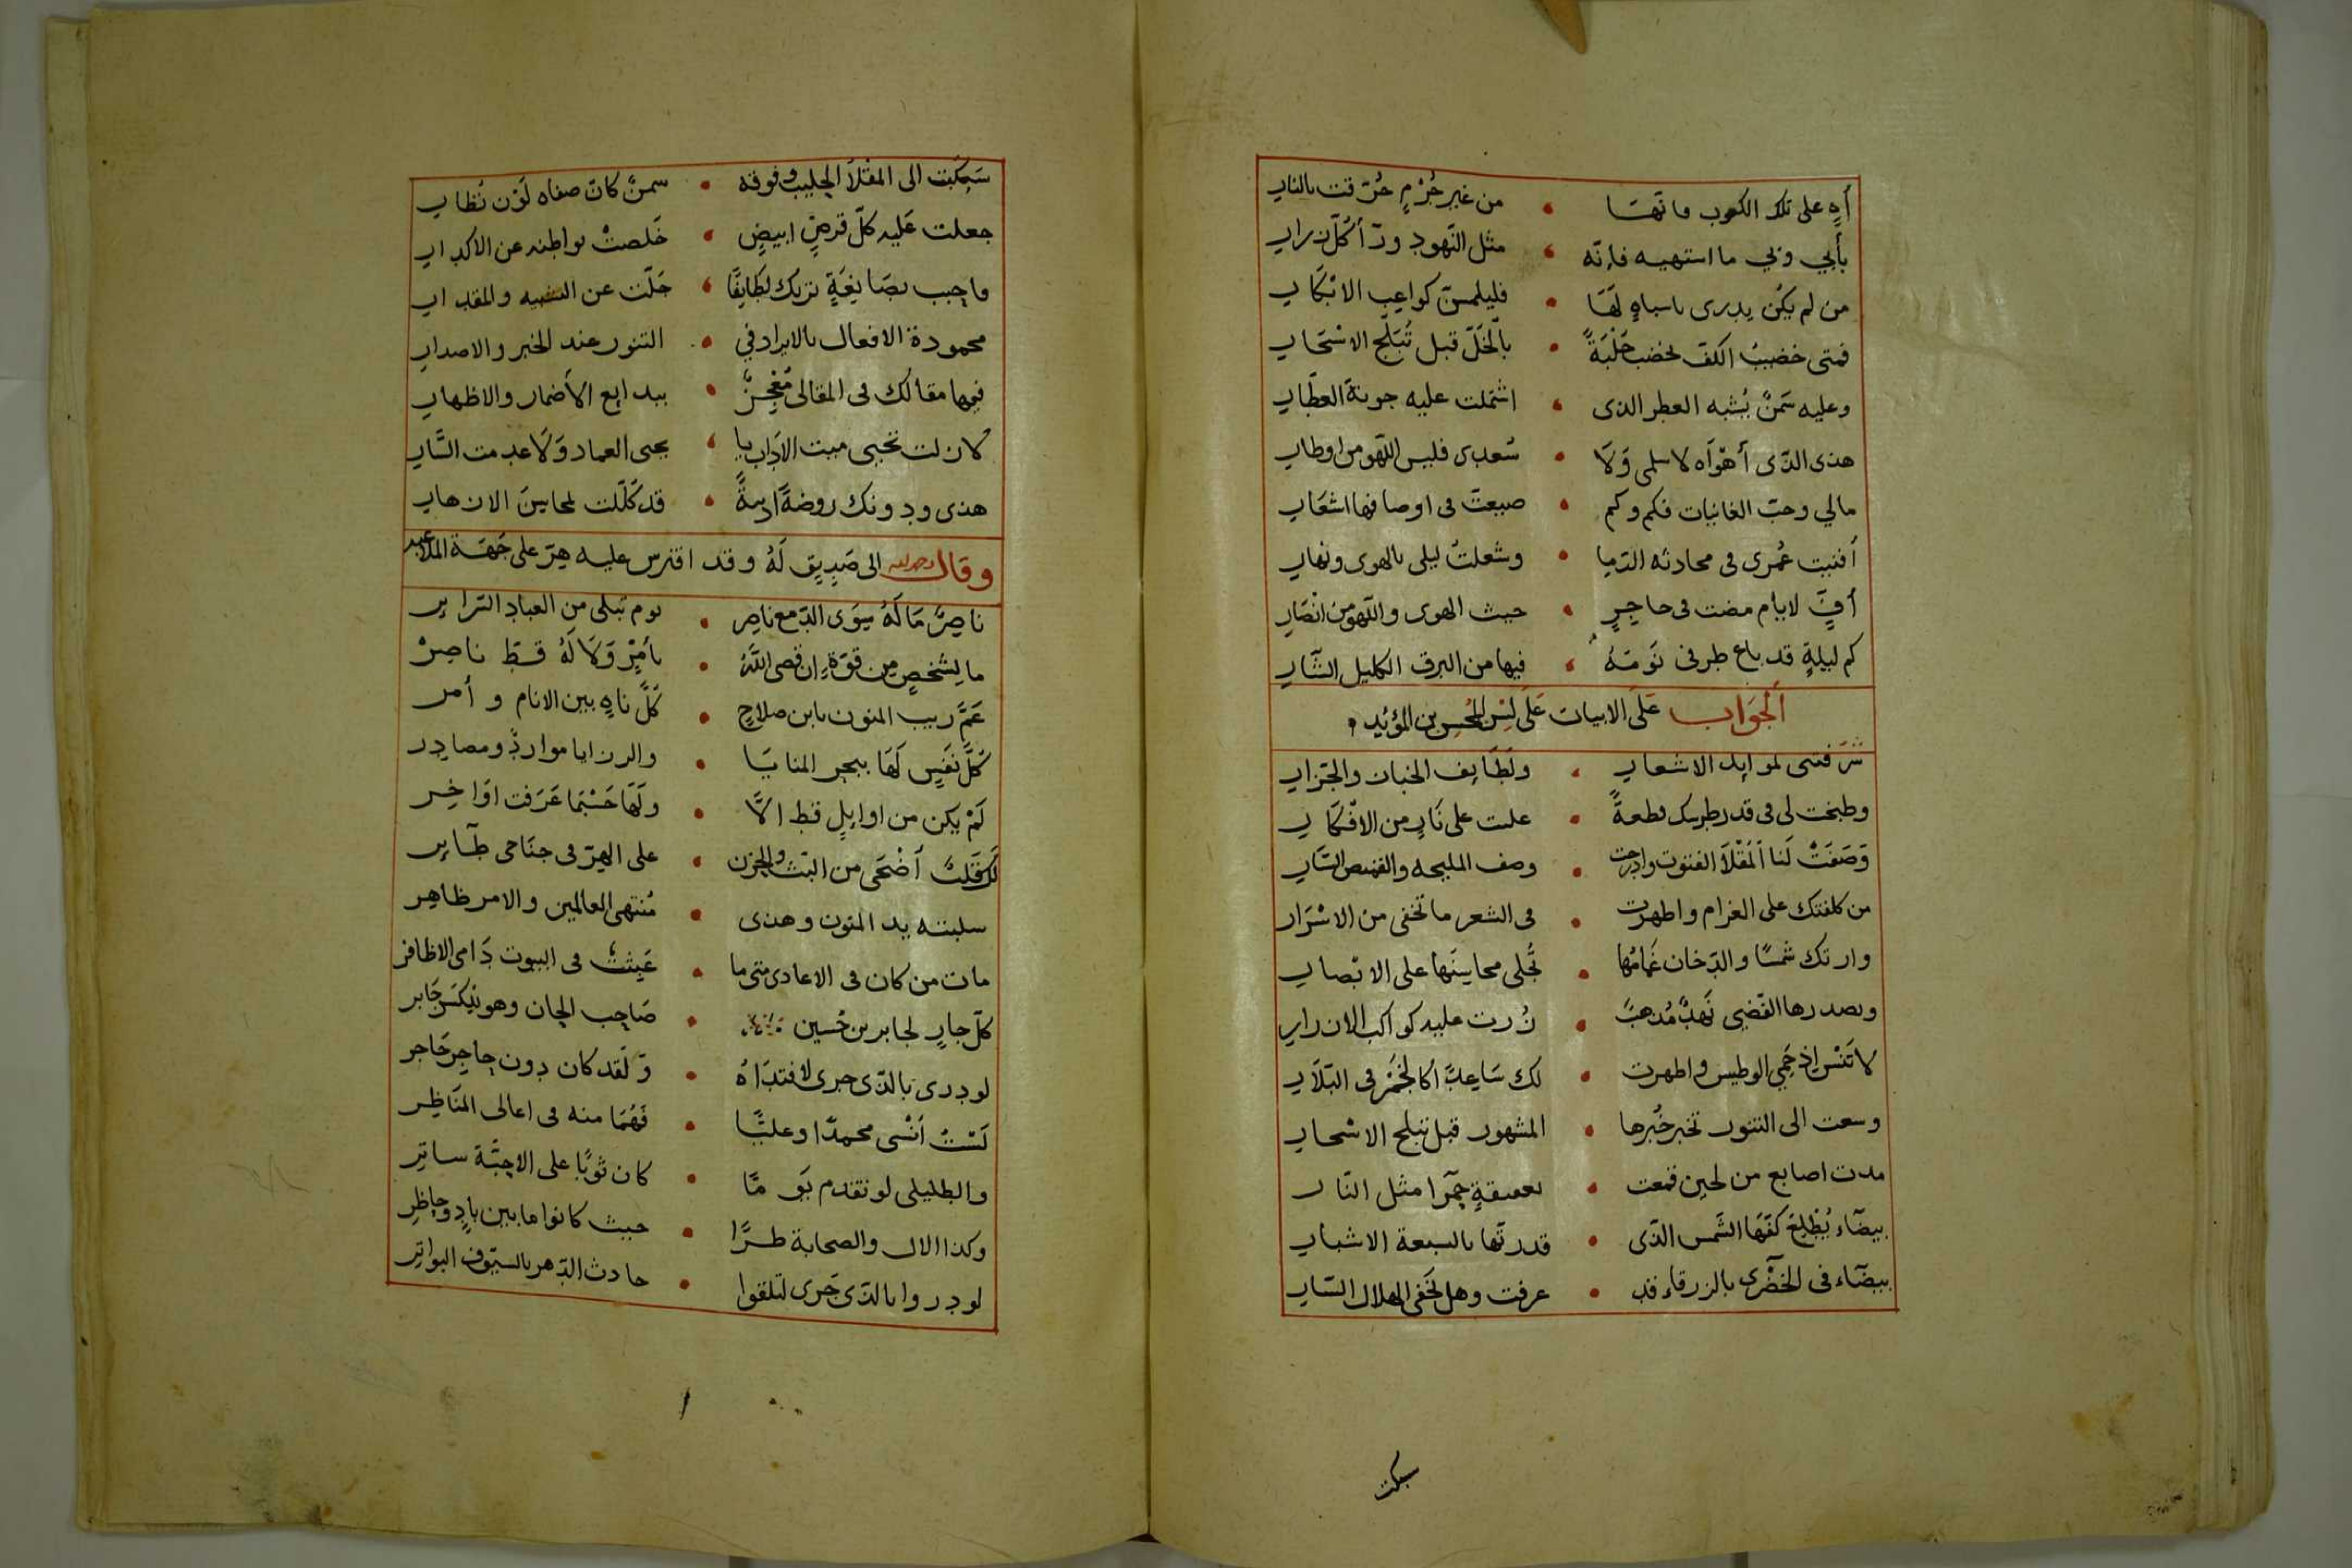 أهٍ على تلك الكعوب فانها • من غير جُرْمٍ حُرّقت بالنار
بأبي وبي ما استهيه فانّه • مثل النهود ودّ أكلّ زرار
من لم يكن يدرى باسباهٍ لَهَا • فليلمسنّ كواعب الابْكَار
فمتى خضيبُ الكفّ تخضب حَلْبَةً • بالخَلّ قبل تُبَلّج الاسْحَار
وعليه سَمنٌ يُشبه العطر الذى • اشتملت عليه جونة العطّار
هذى الذّى أهْوَاه لا سلمى وَلَا • سُعدى فليس اللّهو من اوطار
مالي وحبّ الغانيات فكم وكم • ضيعت فى اوصافها اشعَار
أفنيت عُمرى فى محادثه الدّما • وشغلتُ ليلى بالهوى ونهار
أفٍّ لايام مضت فى حاجِرٍ • حيث الهوى واللّهو من انْصَار
كم ليلةٍ قد باع طرفى نَومَهُ • فيها من البرق الكليل السّار
الجَوَاب عَلَى الابيات عَلَى لِسَن المحسن بن المؤيد
شرّفتنى لموايد الاشعار • ولَطَايف الخباز والجزّار
وطبخت لى فى قدر طرسك قطعةً • علت على نَارٍ من الافكار
وَصَفَتْ لَنا المَقْلَا الفتوت وادرجت • وصف المليحه والقميص السّار
من كلفتك على الغرام واظهرت • فى الشعر ما تخفى من الاسْرَار
وارتك شمسًا والدّخان غَمامُها • تُجلى محاسِنَها على الابْصار
وبصدرها الفضى نَهدٌ مُذهبٌ • زُرت عليه كواكب الازرار
لا تَنْسَ اذ حمِي الوطيس واظهرت • لك سَاعِدًا كالجَمْر فى البّلّار
وسعت الى التنور تخبر خُبرها • المشهور قبل تبلج الاسْحار
مدت اصابع من لجين قمعت • بعقيقةٍ حمرا مثل النار
بيضآء يُطْلِعُ كفّها الشمس الّذى • قدرتها بالسبعة الاشبار
بيضآء فى الخضْرى بالزرقاء قد • عرفت وهل تخفى الهلال السّار
سبكت
سَبكت الى المقْلَا الحليب وفوقه • سمنٌ كانّ صفاه لَوْن نُظار
جعلت عَليه كلّ قرصٍ ابيضٍ • خَلصتْ بواطنه عن الاكدار
فاجب بصَايغَةٍ تريك لطَايِفًا • جَلّت عن التشبيه والمقدار
محمودة الافعال بالايراد في • التنور عند الخبز والاصدار
فيها مقالك فى المقالى مُعْجِزٌ • ببدايع الاضمار والاظهار
لا زلت تحيى ميت الاَداب يا • يحيى العماد وَلَا عدمت السّار
هذى ودونك روضةً ادبيةً • قد كَلّلت لمحاسِنَ الازهار
وقال رحمه الله الى صَديق لَهُ وقد افترس عليه هِرّ على جهَة المُلاعبه
ناصِرٌ مَا لَهُ سِوَى الدّمع ناصِر • يوم تُبلى من العبادِ السّراير
ما لِشَخصٍ مِن قوّةٍ ان قضى اللَّهُ • بأمْرٍ وَلَا لَهُ قطّ ناصِرْ
عَمَّ ريب المنون يابن صلاحٍ • كُلَّ ناهٍ بين الانام و أمر
كُلُّ نَفسٍ لَهَا ببحر المنايَا • والرزايا مواردٌ ومصادِر
لَمْ يكن من اوايلٍ قط الَّا • ولَهَا حَسْبَمَا عَرَفت اوَاخِر
لك قَلبٌ أضْحَى من البّث والحزن • على الهِرّ فى جنَاحى طآير
سلبته يد المنون وهذى • مُنتهى العالمين والامر ظاهِر
مات من كان فى الاعادى متى ما • عَبِثتُ فى البيوت دَامى الاظافر
كلّ جارٍ لجابر بن حُسين • صَاحب الجان وهو نيكسَر جَابر
لو درى بالذّى جرى لافتدَاهُ • وَلَقد كان دون حاجِر حَاجر
لَسْتُ أنْسى محمدّا وعليًّا • فَهُمَا منه فى اعالى المنَاظِر
والبطليلى لو تقدم يَو مًا • كان ثوبًا على الاحِبَّة ساتِر
وكذا الال والصحابة طرًّا • حيث كانوا ما بين بادٍ وحاظِر
لو دروا بالذّى جَرى لتلقوا • حادث الدّهر بالسيّوف البواتِر